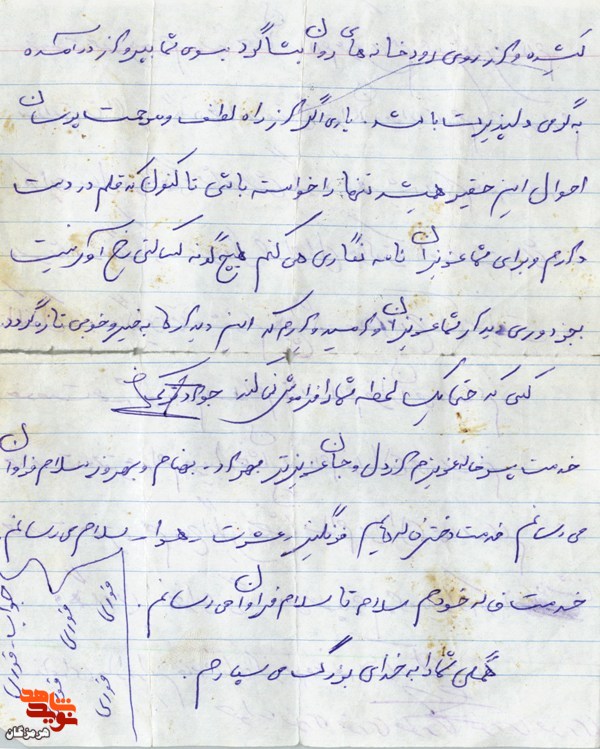 کشیده و از روی رودخانه های روان بشاگرد بسوی شما پیرواز درآمده
به گرمی دلپذیرت باشد. باری اگر از راه لطف و مرحمت پرسان
احوال این حقیر همیشه تنها را خواسته باشی تا کنون که قلم در دست
دارم و برای شما عزیزان نامه نگاری می کنم هیچ گونه کسالتی رخ آور نیست
بجز دوری دیدار شما عزیزان و امیدوارم که این دیدارها به خیر و خوبی تازه گردد
کسی که حتا یک لحظه شما را فراموش نمی کند جواد
خدمت پسرخاله عزیزم از دل و جان عزیزتر مهرداد. بهنام و بهروز سلام فراوان
می رسانم خدمت دخترخاله هایم سلام می رسانم
خدمت خاله خودم سلام تا سلام فراوان می رسانم.
همگی شما را به خدای بزرگ می سپارم.
جواب فوری
فوری
فوری
فوری
فوری
شاهد
نوید
هرمزگان